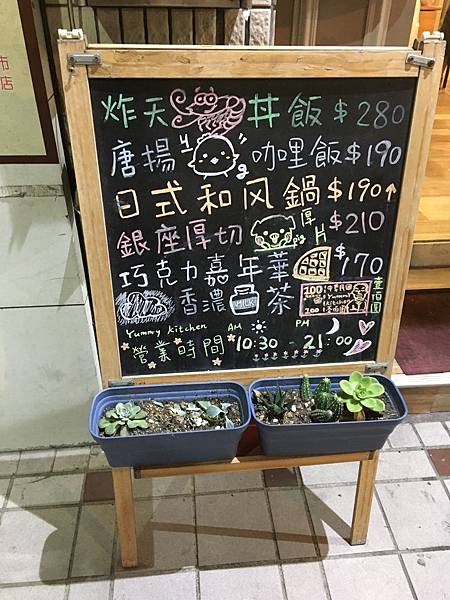 炸天丼飯$280
唐揚咖哩飯$190
日式和风鍋$190↑
銀座厚切厚片$210
pig
巧克力嘉年華$170
香濃MILK茶
壹佰圓
Yummy kitchen AM PM
營業時間 10:30 - 21:00
市
店